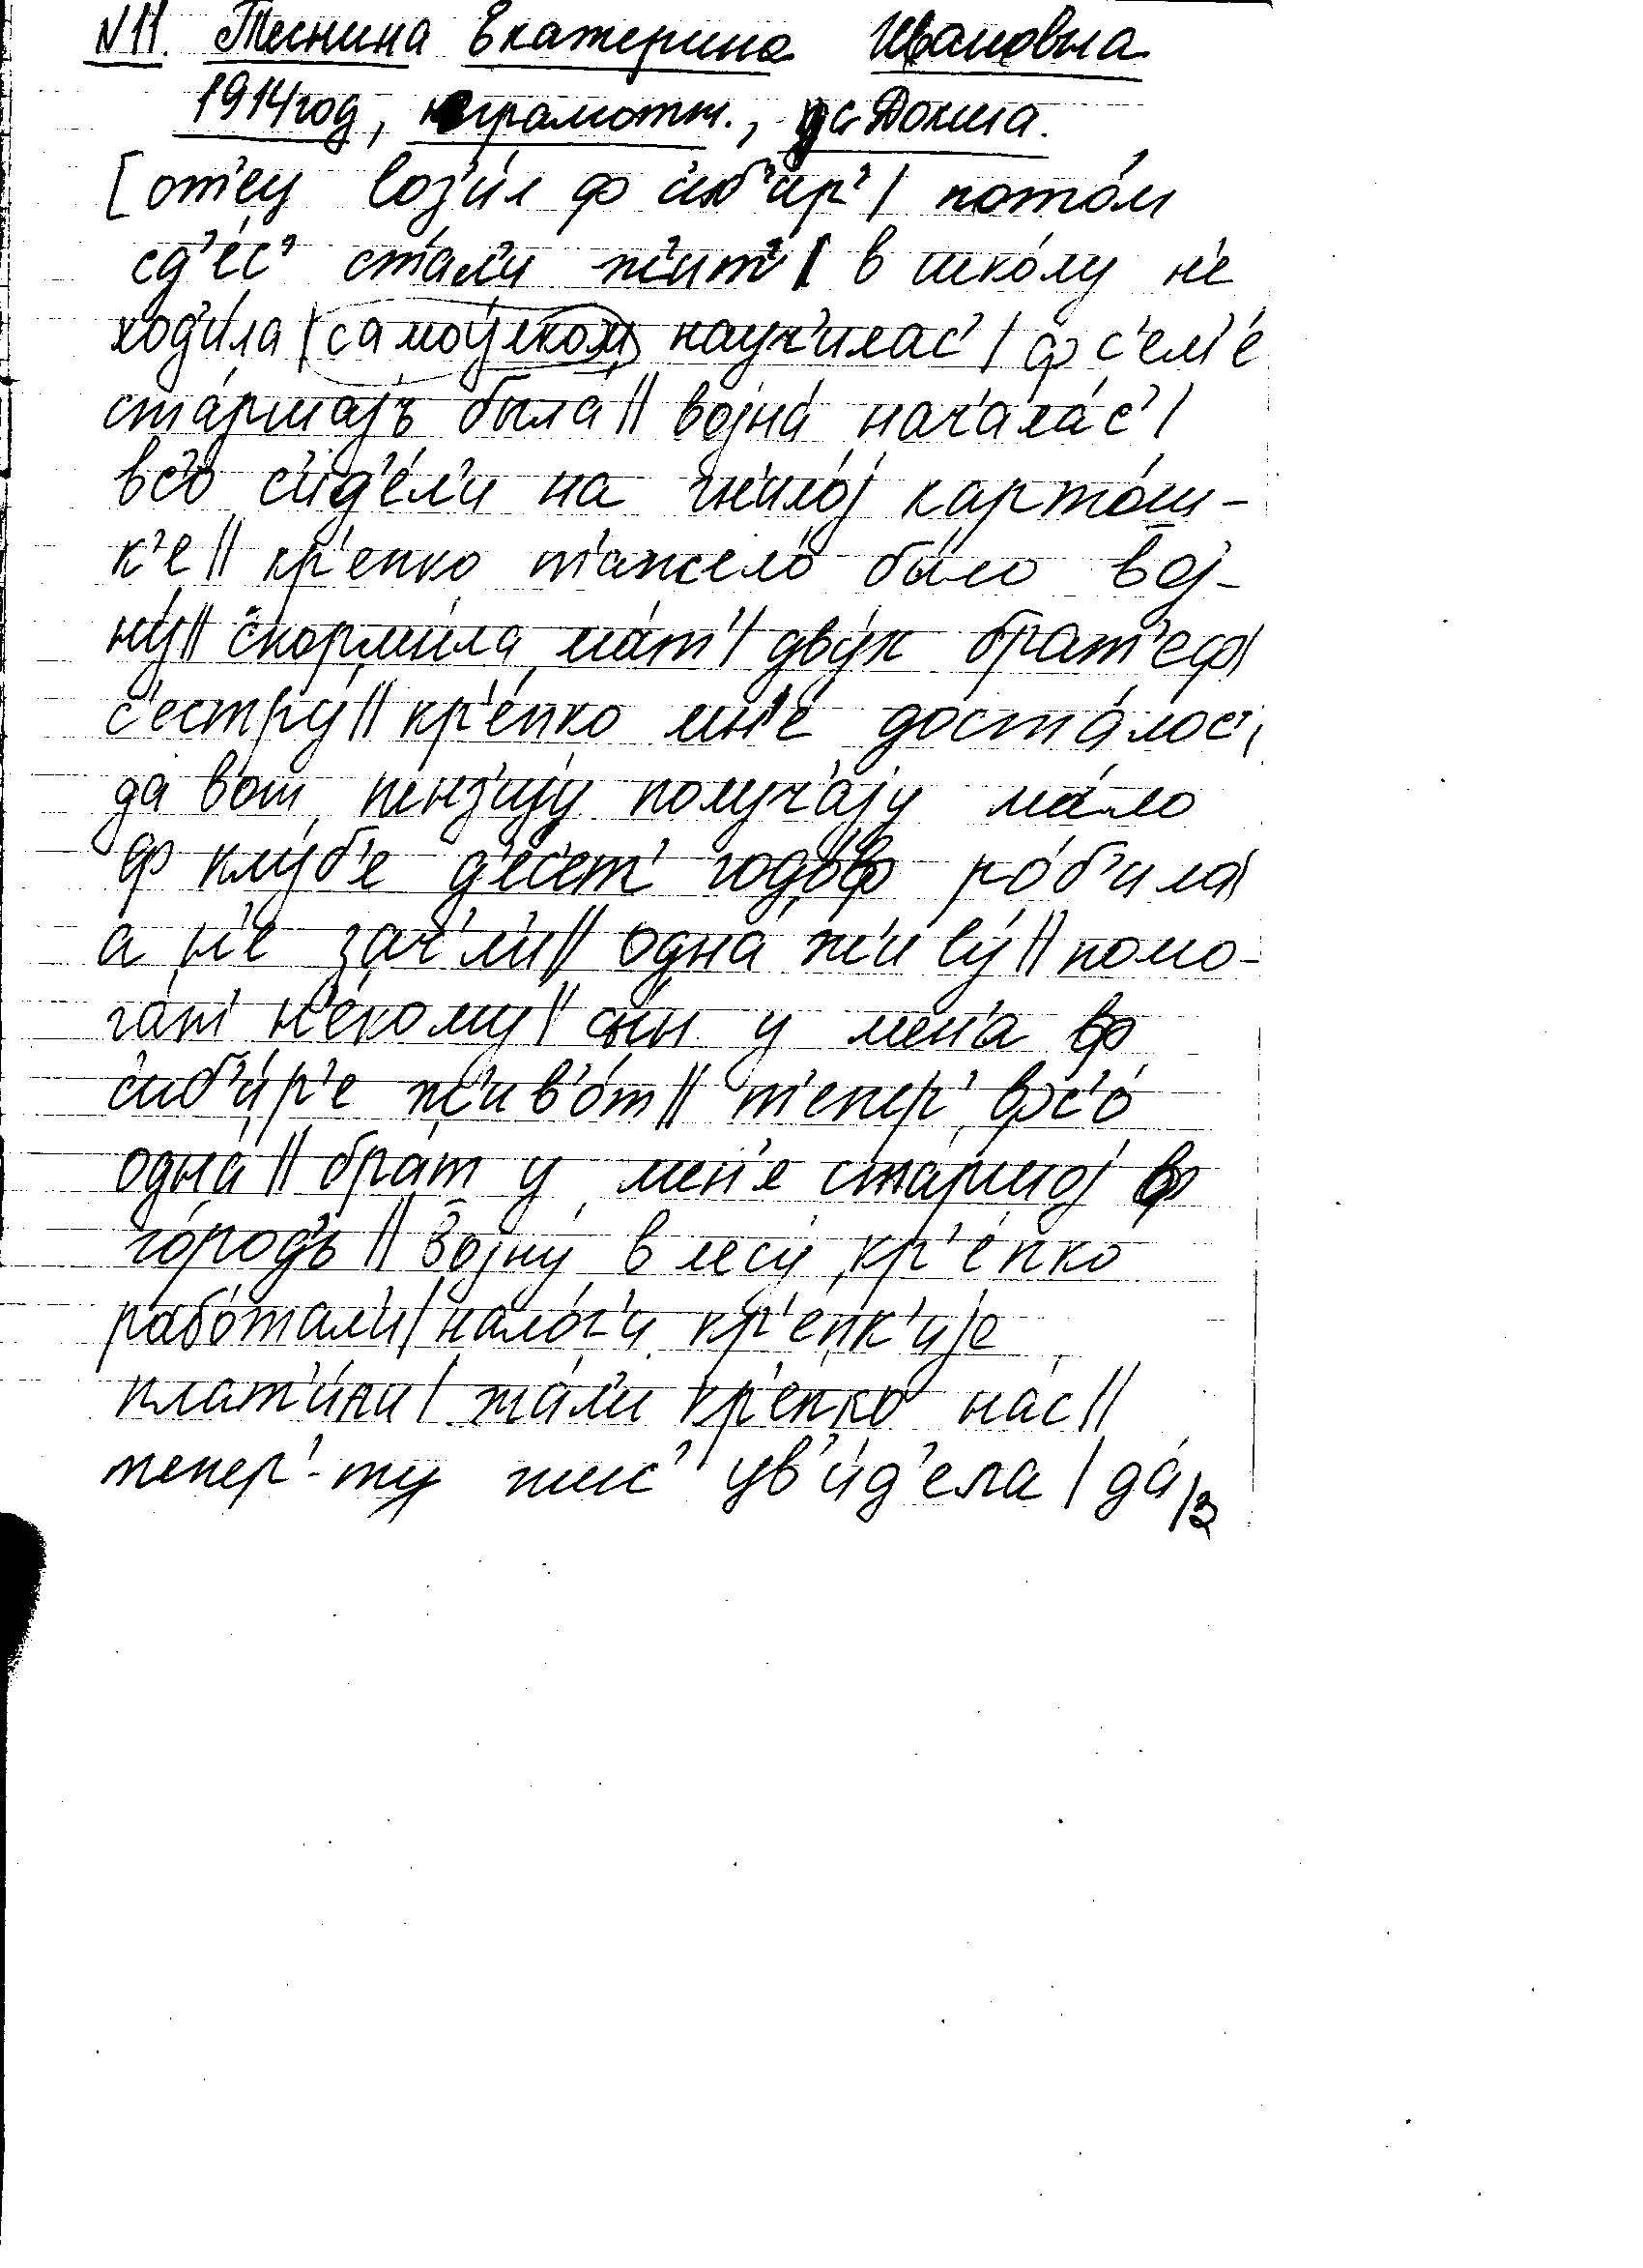 №11. Теснина Екатерина Ивановна
1914 год, неграмотн., ус. Докша.
[от'ец воз'ил ф с'иб'ир' | потóм
сд'éс' стáл'и жит' | в шкóлу н'е
ход'и́ла | самоýлком науч'илас' | ф с'ем'é
стáршаjъ былá || воjнá нач'алáс' |
вс'о с'ид'éл'и на гн'илój картóш-
к'е || кр'епко т'ажелó бы́ло воj-
нý || скорм'и́ла мáт' | двýх брáт'еф |
с'естрý || кр'éпко мн'é достáлос' |
да вот п'éнз'иjу получ'ájу мáло
ф клýб'е д'éс'ет' годóф рóб'ила |
а н'е зач'л'и́ || однá ж'ивý || помо-
гáт' н'éкому | сы́н у мен'á ф
с'иб'и́р'е ж'ив'óт || т'епер' вс'ó
однá || брáт у мен'é стáршоj в
гóрод'ъ || воjнý в лесý кр'éпко
рабóтал'и | налóг'и кр'éпк'иjе
плат'и́л'и | жáл'и кр'éпко нáс ||
тепер'-ту жис' ув'и́д'ела | дá |з